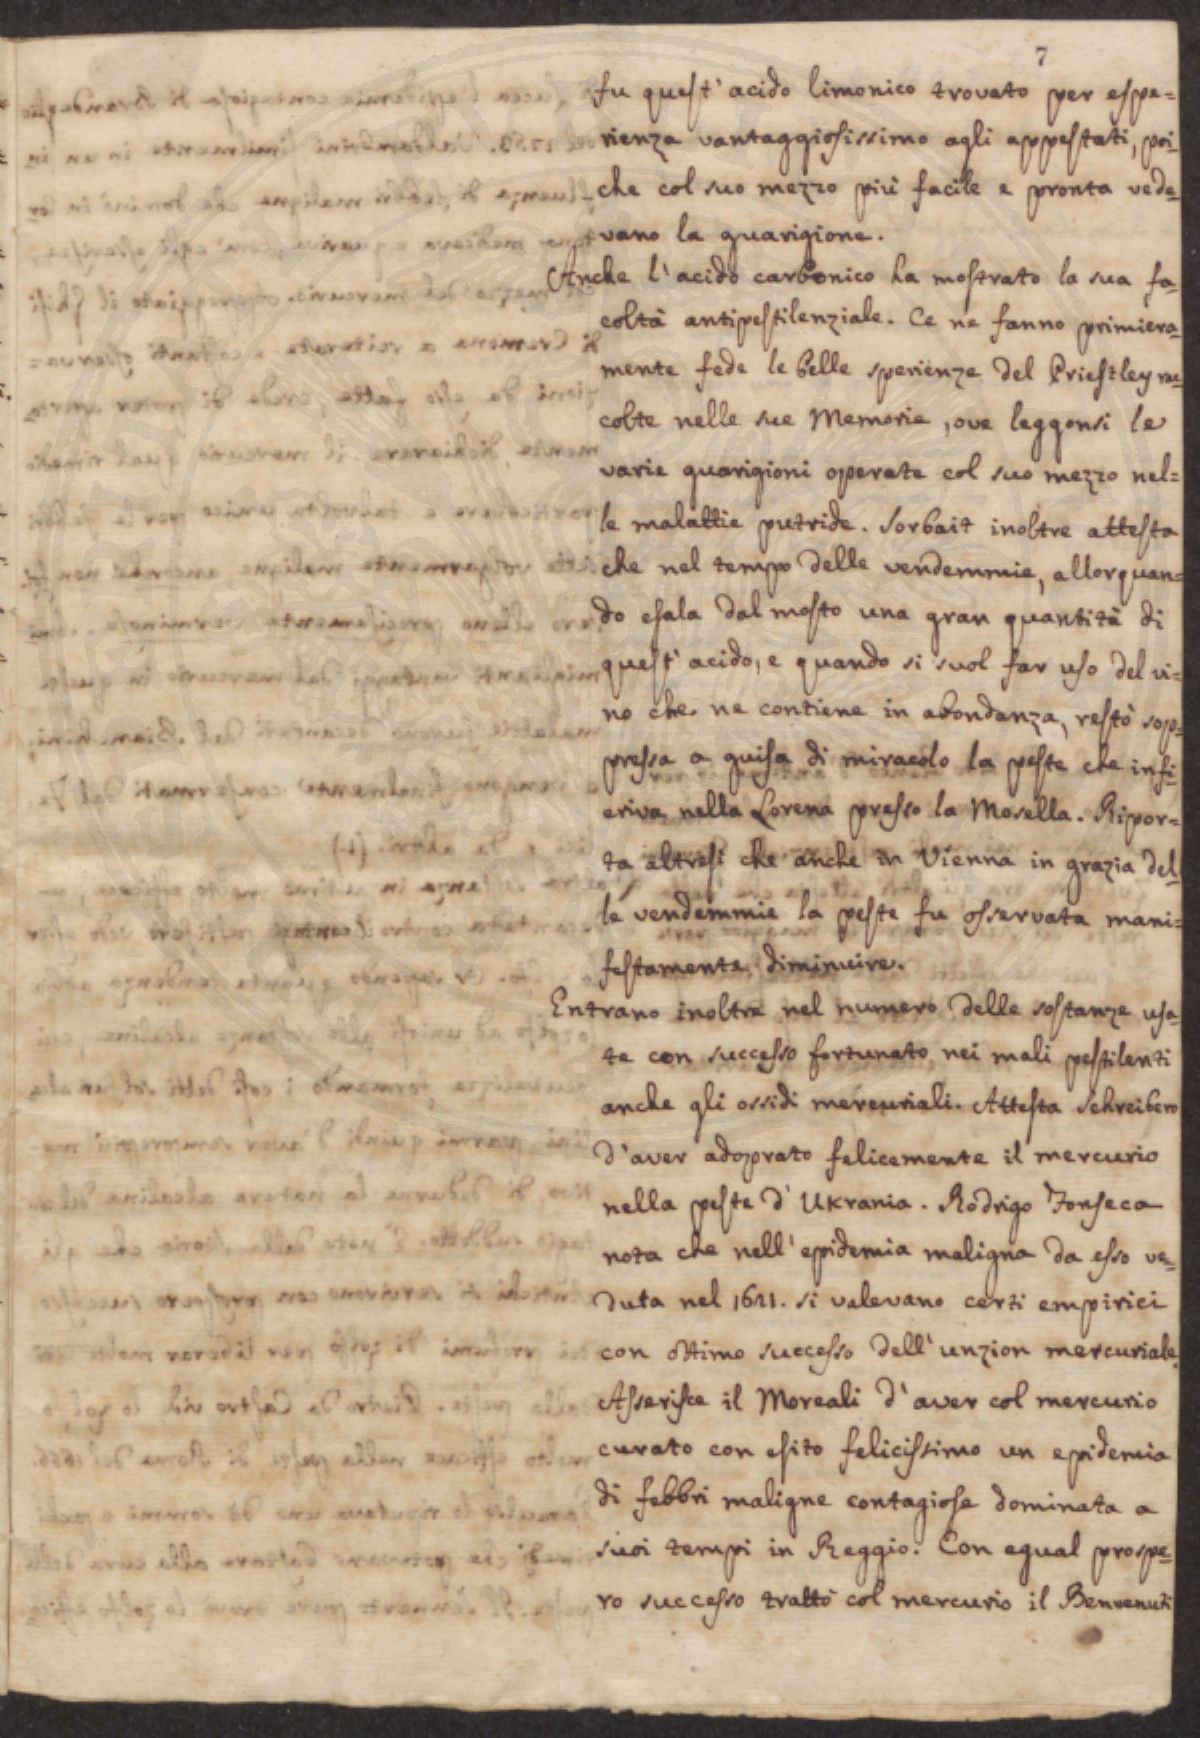 7
fu quest' acido limonico trovato per espe=
rienza vantaggiosissimo agli appestati, poi-
che col suo mezzo più facile e pronta vede-
vano la guarigione.
Anche l'acido carbonico ha mostrato la sua fa-
coltà antipestilenziale. Ce ne fanno primiera-
mente fede le belle sperienze del Priestley rac-
colte nelle sue Memorie, ove leggonsi le
varie guarigioni operate col suo mezzo nel=
le malattie putride. Sorbait inoltre attesta
che nel tempo delle vendemmie, allorquan=
do esala dal mosto una gran quantità di
quest' acido, e quando si suol far uso del vi=
no che ne contiene in abondanza, restò sop=
pressa a guisa di miracolo la peste che infi-
eriva nella Lorena presso la Mosella. Ripor=
ta altresì che anche in Vienna in grazia del-
le vendemmie la peste fu osservata mani=
festamente diminuire.
Entrano inoltre nel numero delle sostanze usa-
te con successo fortunato nei mali pestilenti
anche gli ossidi mercuriali. Attesta Schreibero
d'aver adoprato felicemente il mercurio
nella peste d' Ukrania. Rodrigo Fonseca
nota che nell' epidemia maligna da esso ve=
duta nel 1621. si valevano certi empirici
con ottimo successo dell' unzion mercuriale.
Asserisce il Moreali d'aver col mercurio
curato con esito felicissimo un epidemia
di febbri maligne contagiose dominata a
suoi tempi in Reggio. Con egual prospe-
ro successo trattò col mercurio il Benvenuti